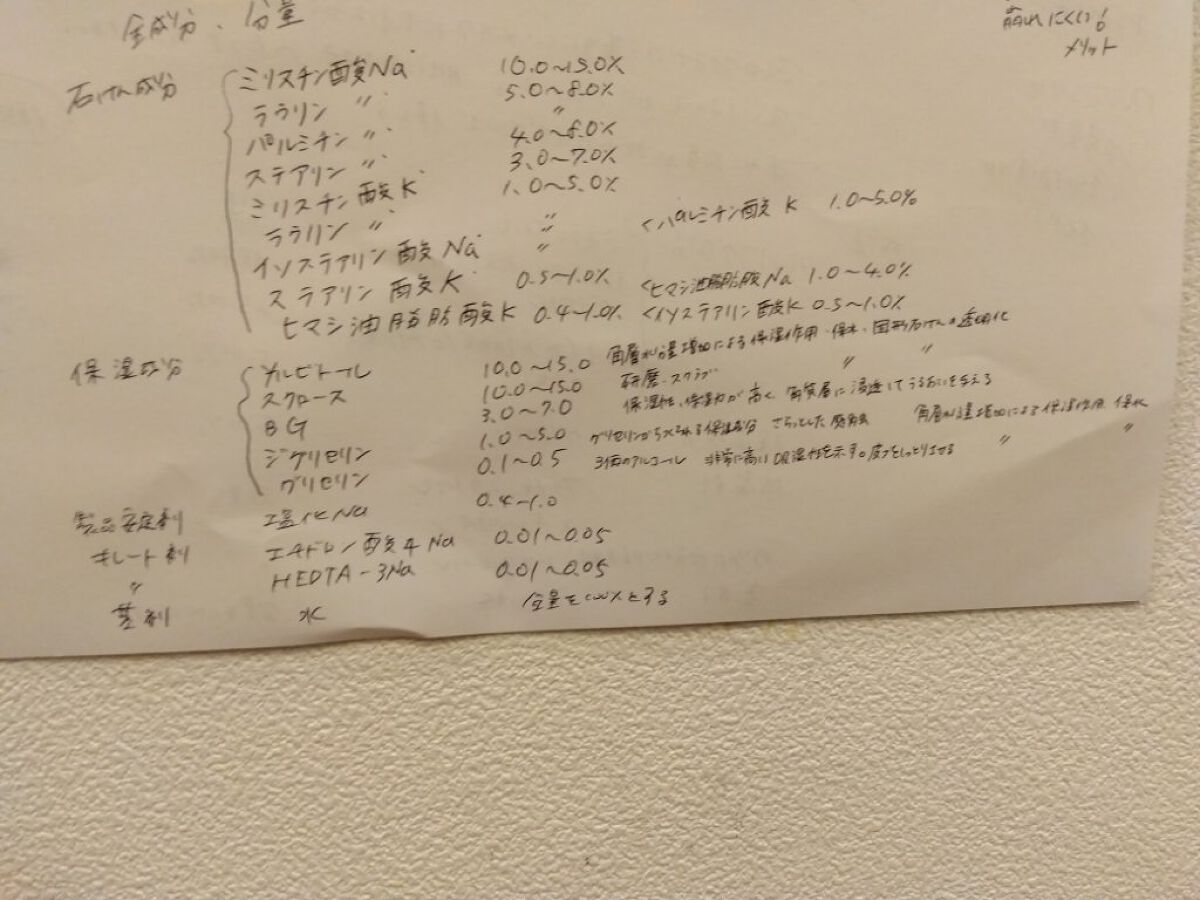 全成分、分量
崩れにくい!
メリット
石けん成分 ミリスチン酸Na 10.0~15.0%
ラウリン 〃 5.0~8.0%
パルミチン 〃 〃
ステアリン 〃 4.0~6.0%
ミリスチン酸K 3.0~7.0%
ラウリン 〃 1.0~5.0%
イソステアリン酸Na 〃 <パルミチン酸K 1.0~5.0%
ステアリン酸K 0.5~1.0% <ヒマシ油脂肪酸Na 1.0~4.0%
ヒマシ油脂肪酸K 0.4~1.0% <イソステアリン酸K 0.5~1.0%
保湿成分 ソルビトール 10.0~15.0 角層水分量増加による保湿作用・保水・固形石けんの透明化
スクロース 10.0~15.0 研磨・スクラブ 〃 〃
BG 3.0~7.0 保湿性、保湿力が高く、角質層に浸透してうるおいを与える
ジグリセリン 1.0~5.0 グリセリンから 保湿成分 さらっとした 角層水分量増加による保湿作用 保水
グリセリン 0.1~0.5 3価のアルコール 非常に高い吸湿性を示す。皮フをしっとりさせる 〃 〃
製品安定剤 塩化Na 0.4~1.0
キレート剤 エチドロン酸4Na 0.01~0.05
〃 HEDTA-3Na 0.01~0.05
基剤 水 全量を100%とする